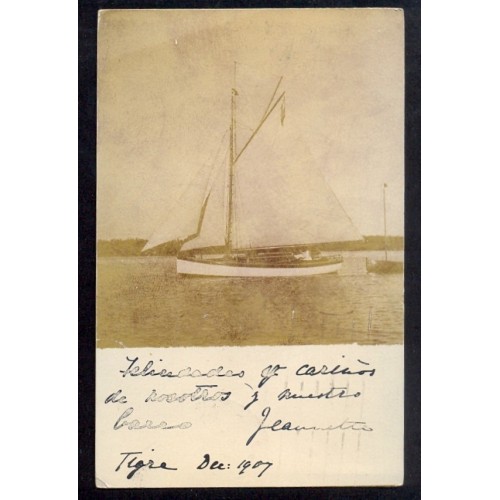 Felicidades y cariños
de nosotros y nuestro
barro Jeannette
Tigre Dec: 1907